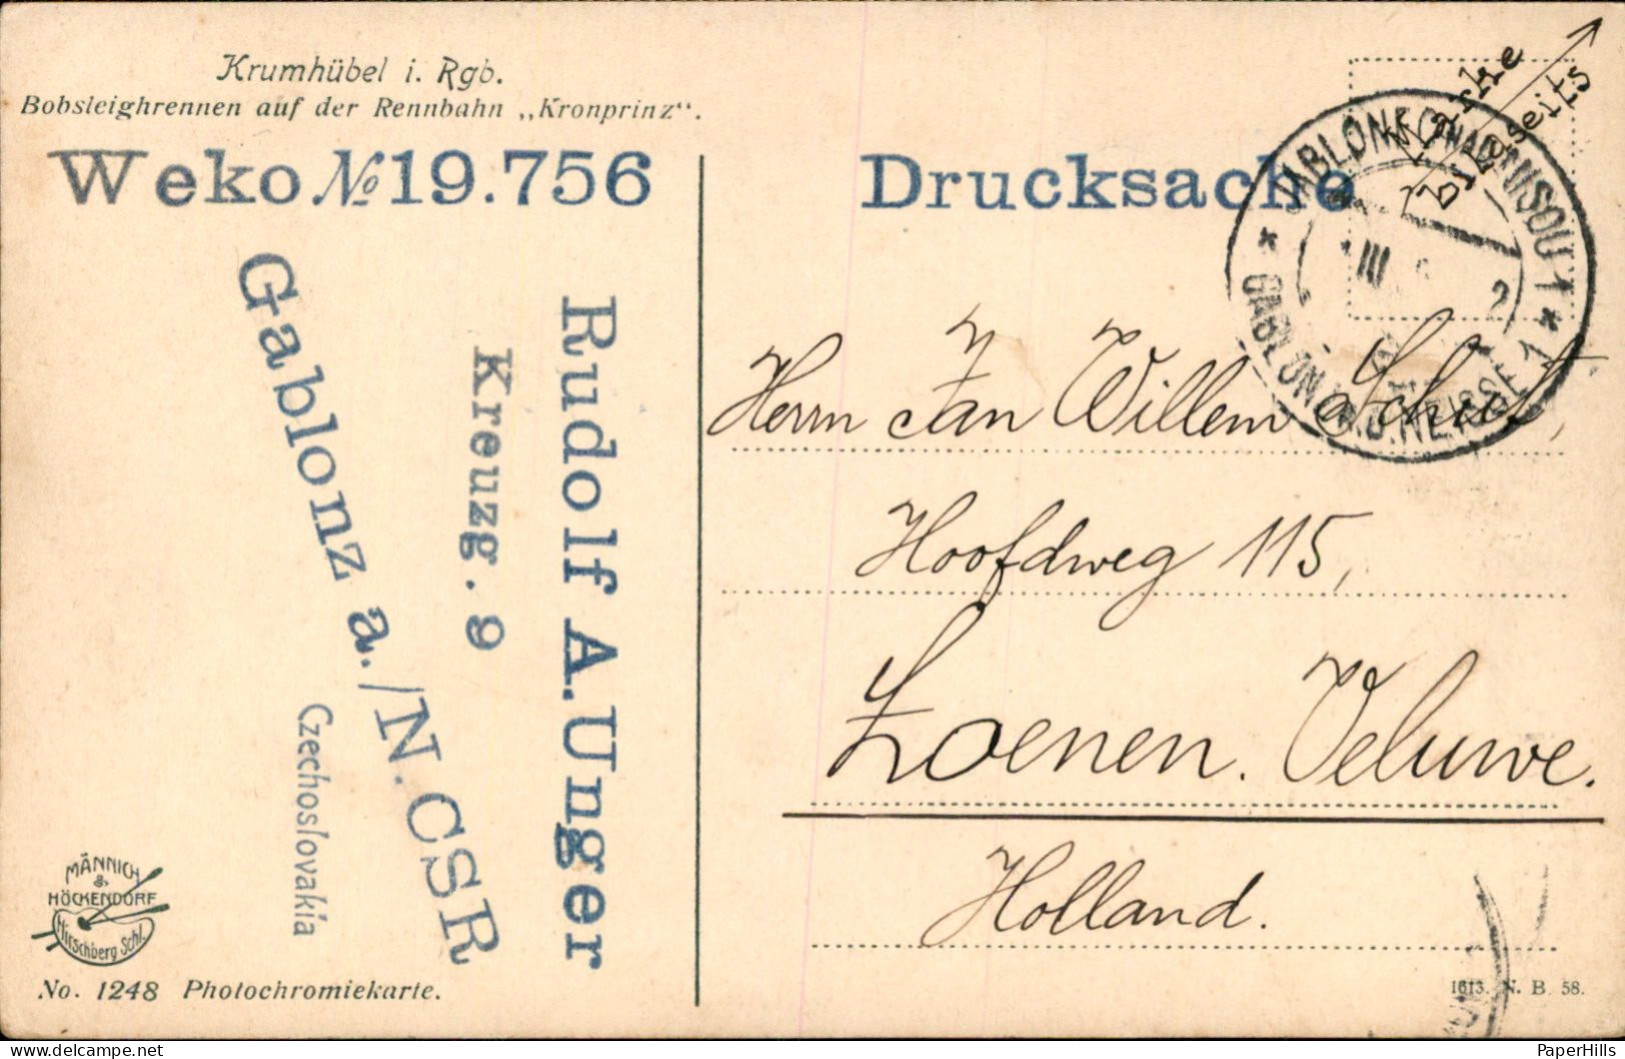 Krumhübel i. Rgb.
Bobsleighrennen auf der Rennbahn „Kronprinz“.
Weko № 19.756
Drucksache
Marke
bildseits
JABLONEC NAD NISOU 1
* *
III 2
GABLONZ A. D. NEISSE 1
Rudolf A. Unger
Kreuzg. 9
Gablonz a./N. CSR
Czechoslovakia
Herrn Jan Willem Schut,
Hoofdweg 115,
Loenen. Veluwe.
Holland.
MÄNNICH
&
HÖCKENDORF
Hirschberg Schl.
No. 1248 Photochromiekarte.
1613. N. B. 58.
PaperHills